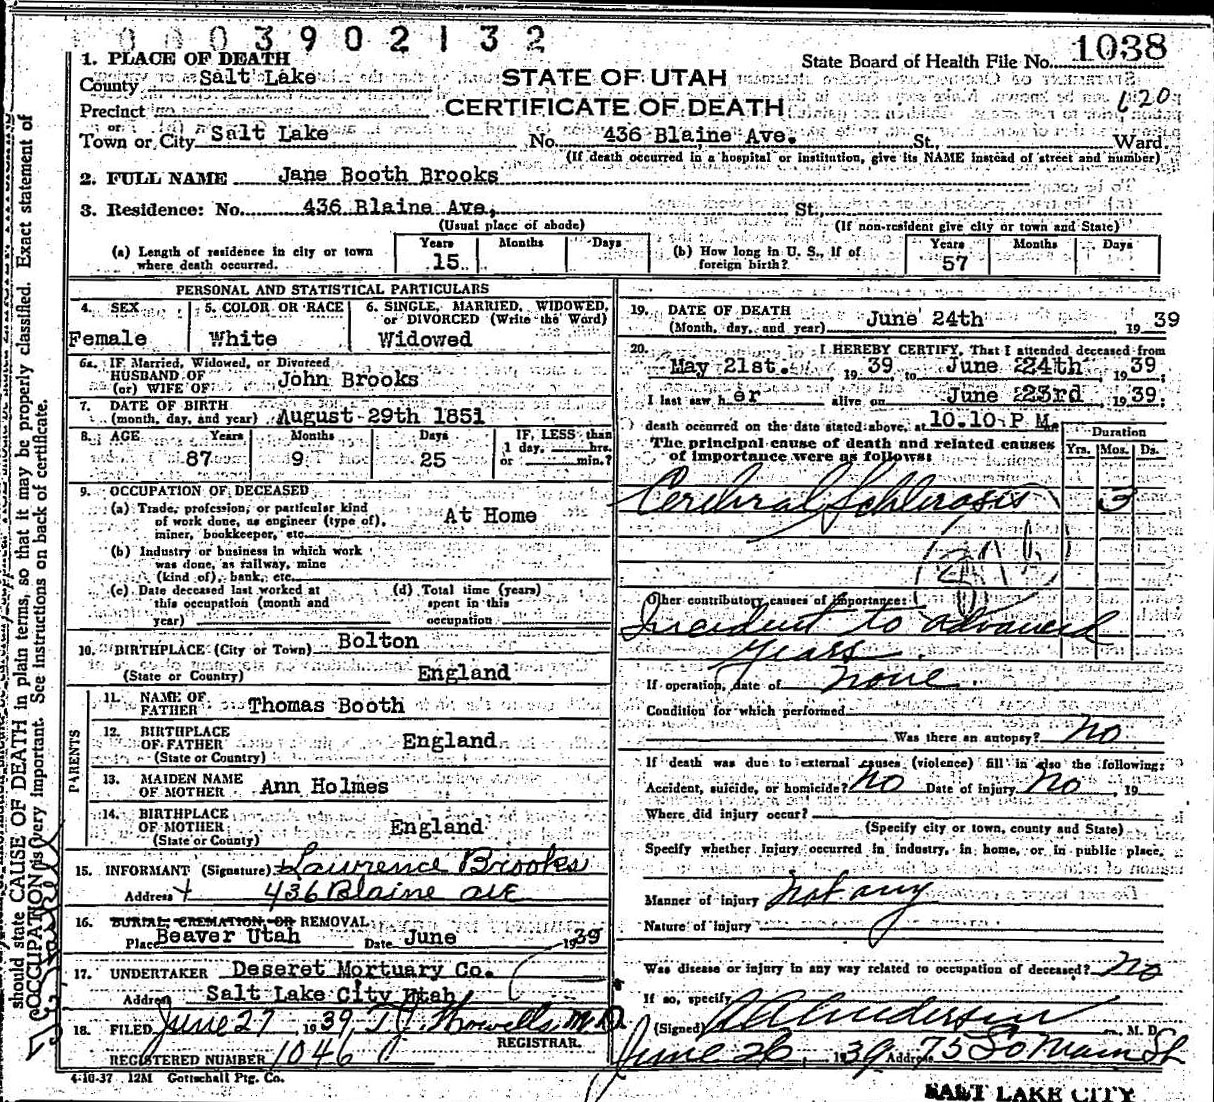 0003902132
1. PLACE OF DEATH
State Board of Health File No. 1038
County Salt Lake
STATE OF UTAH
CERTIFICATE OF DEATH
Precinct
120
or
Town or City Salt Lake No. 436 Blaine Ave. St., Ward
(If death occurred in a hospital or institution, give its NAME instead of street and number)
2. FULL NAME Jane Booth Brooks
3. Residence: No. 436 Blaine Ave, St.,
(Usual place of abode) (If non-resident give city or town and State)
(a) Length of residence in city or town where death occurred. Years 15 Months Days
(b) How long in U. S., if of foreign birth? Years 57 Months Days
PERSONAL AND STATISTICAL PARTICULARS
4. SEX Female
5. COLOR OR RACE White
6. SINGLE, MARRIED, WIDOWED, or DIVORCED (Write the Word) Widowed
6a. IF Married, Widowed, or Divorced
HUSBAND OF
(or) WIFE OF John Brooks
7. DATE OF BIRTH
(month, day, and year) August 29th 1851
8. AGE Years 87 Months 9 Days 25 IF LESS than 1 day, hrs. or min.?
9. OCCUPATION OF DECEASED
(a) Trade, profession, or particular kind of work done, as engineer (type of), miner, bookkeeper, etc. At Home
(b) Industry or business in which work was done, as railway, mine (kind of), bank, etc.
(c) Date deceased last worked at this occupation (month and year)
(d) Total time (years) spent in this occupation
10. BIRTHPLACE (City or Town) Bolton
(State or Country) England
PARENTS
11. NAME OF FATHER Thomas Booth
12. BIRTHPLACE OF FATHER (State or Country) England
13. MAIDEN NAME OF MOTHER Ann Holmes
14. BIRTHPLACE OF MOTHER (State or County) England
15. INFORMANT (Signature) Lawrence Brooks
Address 436 Blaine Ave
16. BURIAL, CREMATION, OR REMOVAL
Place Beaver Utah Date June 1939
17. UNDERTAKER Deseret Mortuary Co.
Address Salt Lake City Utah
18. FILED June 27, 1939,
REGISTRAR.
REGISTERED NUMBER 1046
4-10-37 12M Gottschall Ptg. Co.
19. DATE OF DEATH
(Month, day, and year) June 24th 1939
20. I HEREBY CERTIFY, That I attended deceased from
May 21st. 1939, to June 24th, 1939,
I last saw her alive on June 23rd, 1939,
death occurred on the date stated above, at 10.10 P M.
The principal cause of death and related causes of importance were as follows:
Duration
Yrs. Mos. Ds.
Cerebral Schlerosis 3
Other contributory causes of importance:
Incident to advanced
years.
If operation, date of none.
Condition for which performed
Was there an autopsy? no
If death was due to external causes (violence) fill in also the following:
Accident, suicide, or homicide? no Date of injury no, 19
Where did injury occur?
(Specify city or town, county and State)
Specify whether injury occurred in industry, in home, or in public place.
Manner of injury not any
Nature of injury
Was disease or injury in any way related to occupation of deceased? no
If so, specify
(Signed) Anderson M. D.
June 26, 1939 Address 75 So Main St
SALT LAKE CITY
should state CAUSE OF DEATH in plain terms, so that it may be properly classified. Exact statement of
OCCUPATION is very important. See instructions on back of certificate.